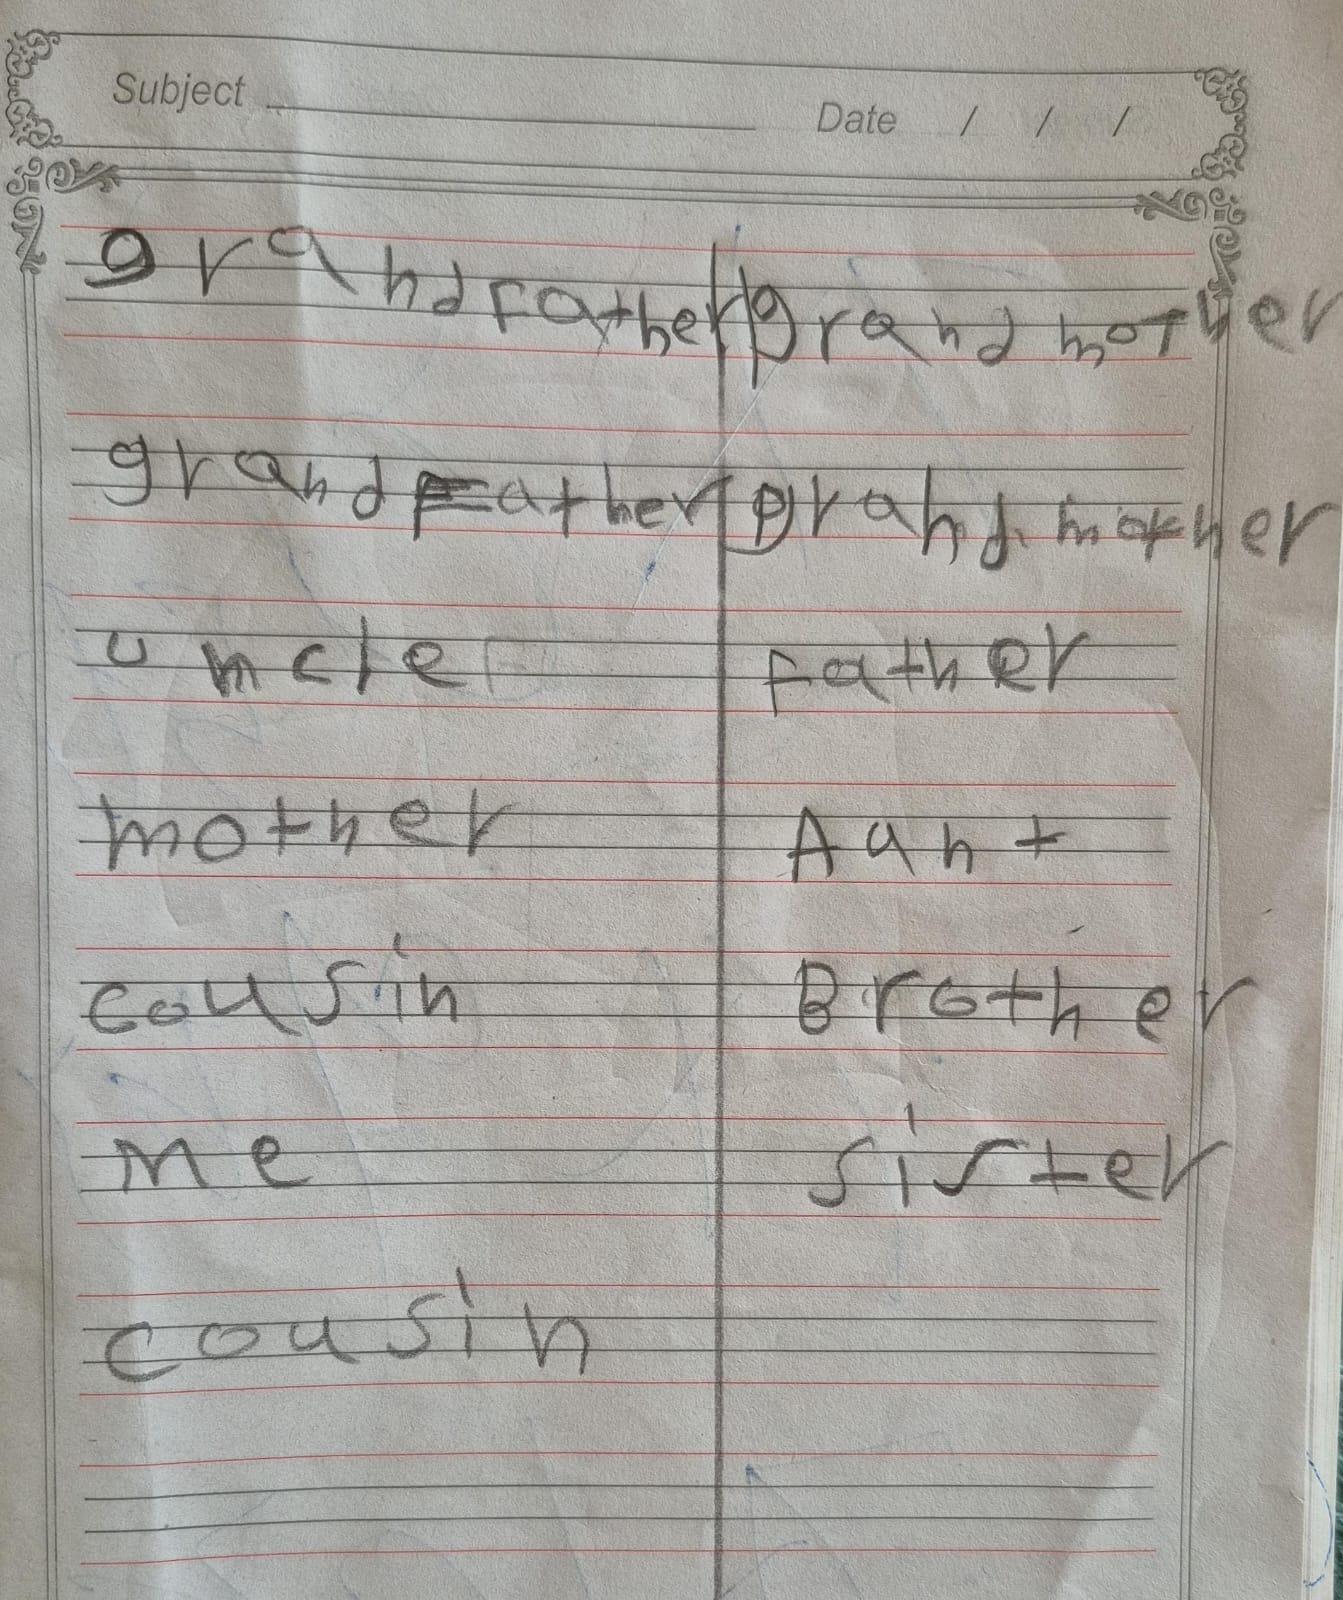 Subject Date / / /
grandfather grandmother
grandFather grandmother
uncle Father
mother Aunt
cousin Brother
me sister
cousin